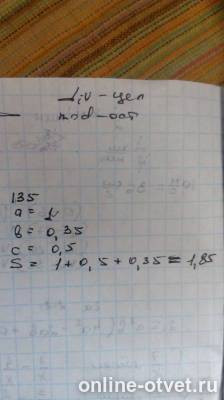 div - цел
mod - ост
135
a = 1
в = 0,35
c = 0,5
S = 1 + 0,5 + 0,35 = 1,85
online-otvet.ru